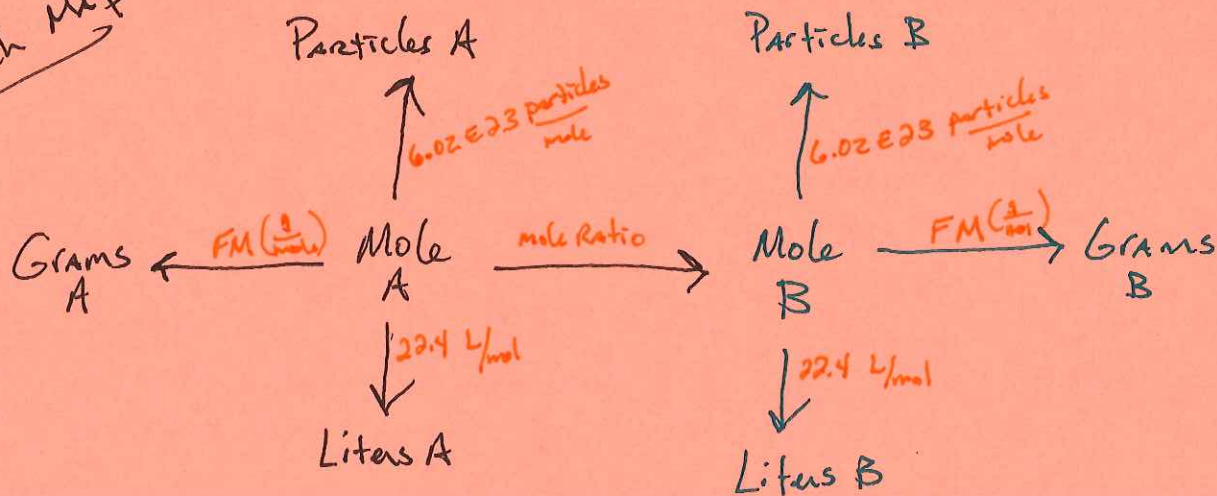 Particles A
Particles B
6.02E23 particles/mole
6.02E23 particles/mole
Grams A
FM (g/mole)
Mole A
mole Ratio
Mole B
FM (g/mol)
Grams B
22.4 L/mol
22.4 L/mol
Liters A
Liters B